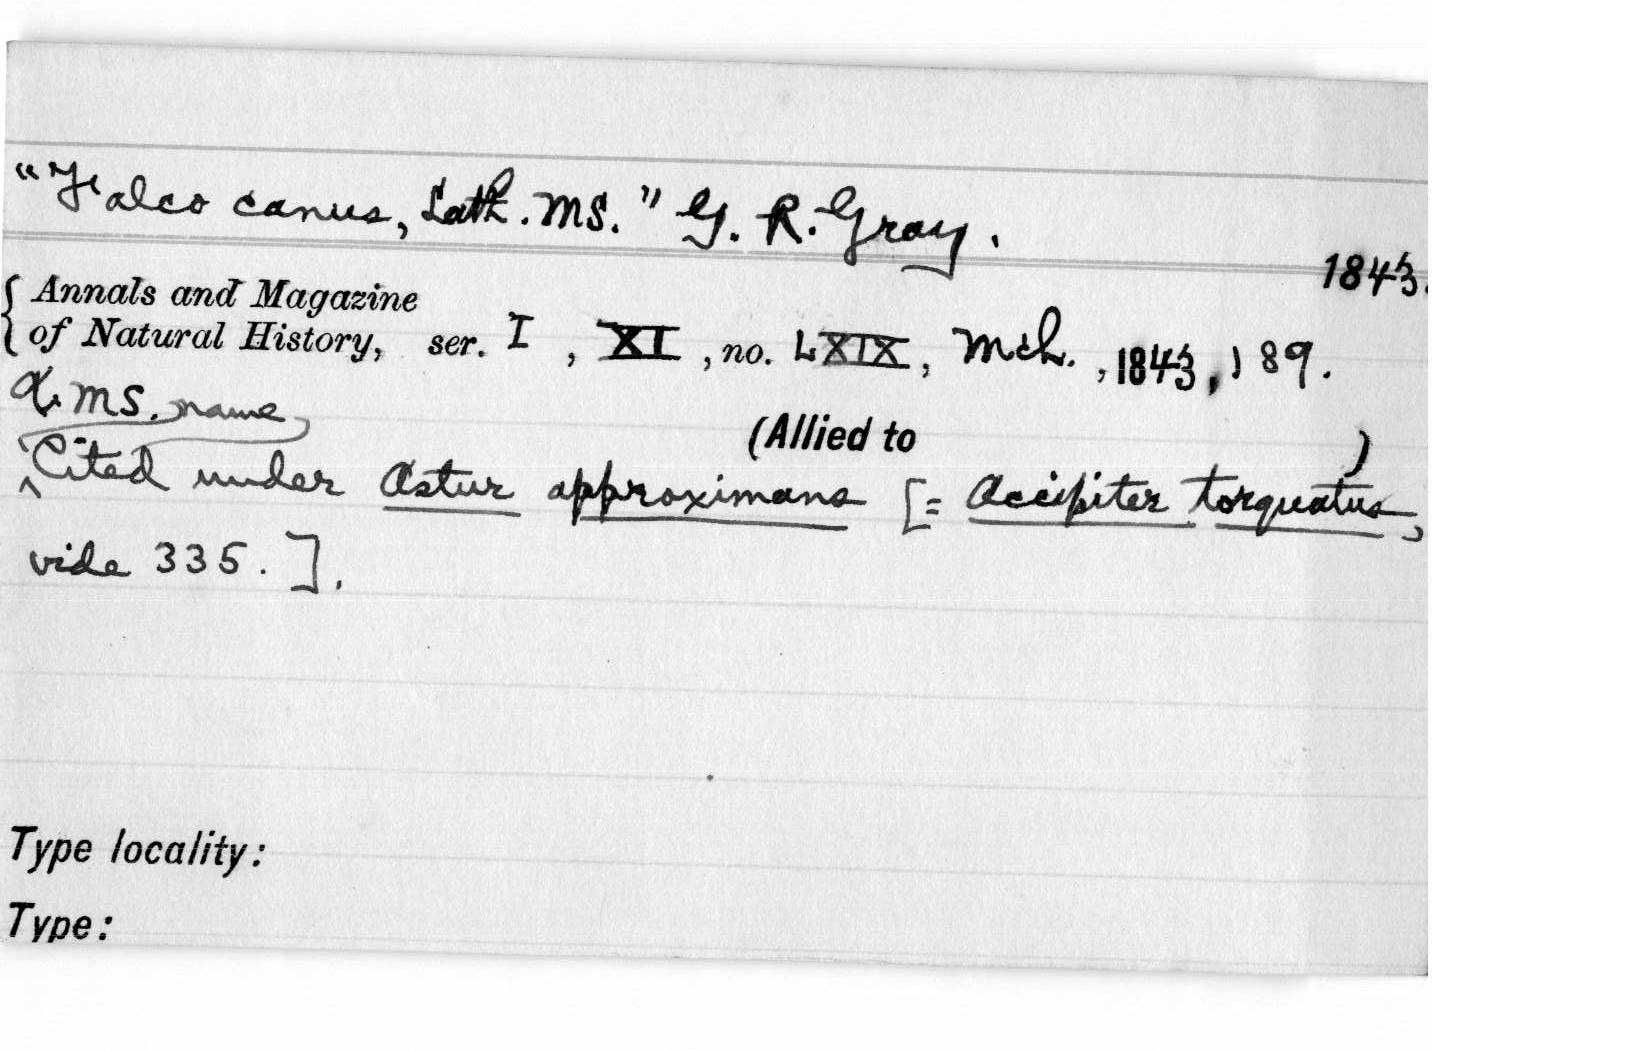 "Falco canus, Lath. MS." G. R. Gray.
1843.
Annals and Magazine
of Natural History, ser. I, XI, no. LXIX, Mch., 1843, 189.
A MS. name
(Allied to )
Cited under Astur approximans [= Accipiter torquatus,
vide 335.].
Type locality:
Type: